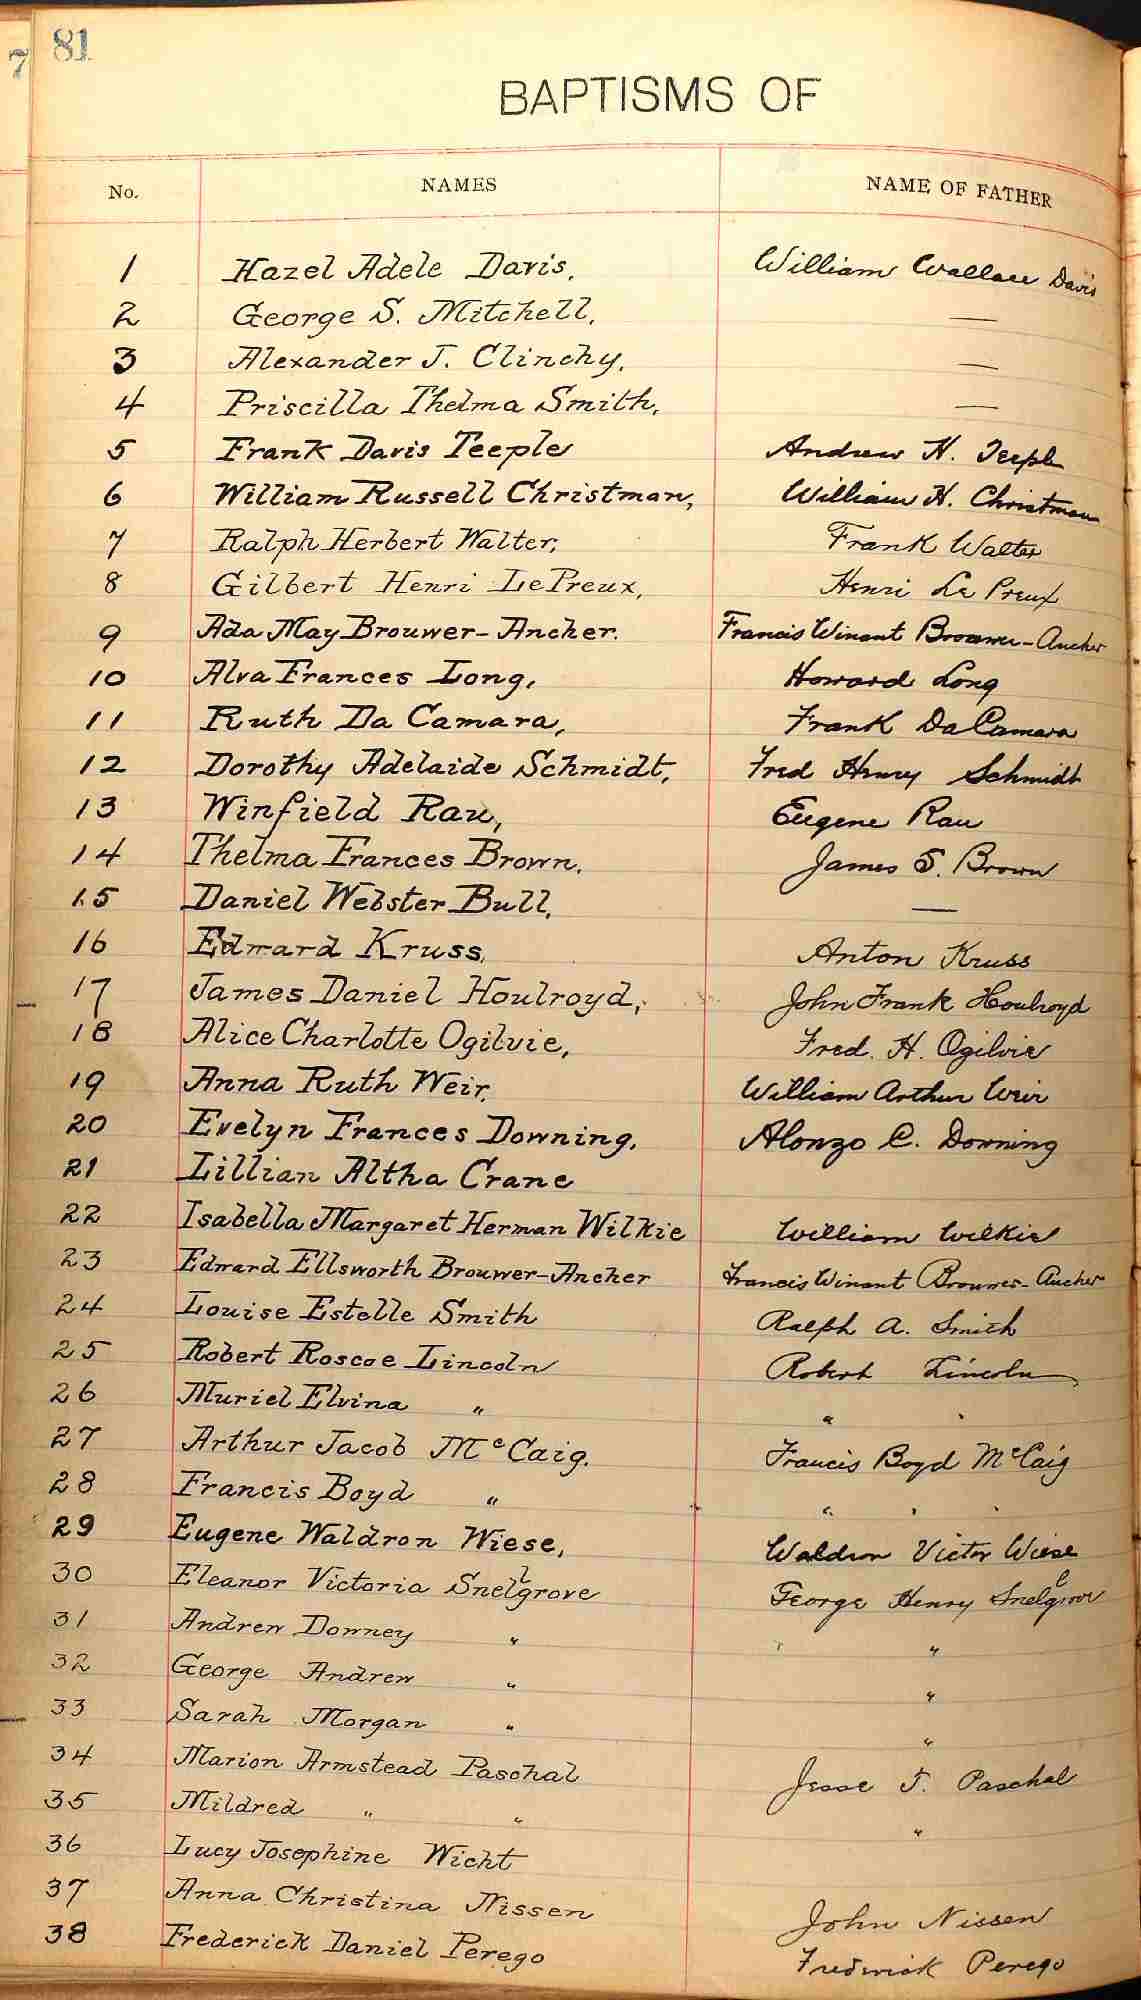 7 81
BAPTISMS OF
No. NAMES NAME OF FATHER
1 Hazel Adele Davis. William Wallace Davis
2 George S. Mitchell. —
3 Alexander J. Clinchy. —
4 Priscilla Thelma Smith. —
5 Frank Davis Teeple Andrew H. Teeple
6 William Russell Christman, William H. Christman
7 Ralph Herbert Walter. Frank Walter
8 Gilbert Henri LePreux. Henri Le Preux
9 Ada May Brouwer-Ancher. Francis Winant Brouwer-Ancher
10 Alva Frances Long. Howard Long
11 Ruth Da Camara, Frank Da Camara
12 Dorothy Adelaide Schmidt, Fred Henry Schmidt
13 Winfield Rau, Eugene Rau
14 Thelma Frances Brown. James S. Brown
15 Daniel Webster Bull. —
16 Edward Kruss. Anton Kruss
17 James Daniel Houlroyd, John Frank Houlroyd
18 Alice Charlotte Ogilvie, Fred. H. Ogilvie
19 Anna Ruth Weir. William Arthur Weir
20 Evelyn Frances Downing. Alonzo C. Downing
21 Lillian Altha Crane
22 Isabella Margaret Herman Wilkie William Wilkie
23 Edward Ellsworth Brouwer-Ancher Francis Winant Brouwer-Ancher
24 Louise Estelle Smith Ralph A. Smith
25 Robert Roscoe Lincoln Robert Lincoln
26 Muriel Elvina " " "
27 Arthur Jacob McCaig. Francis Boyd McCaig
28 Francis Boyd " " " "
29 Eugene Waldron Wiese, Waldron Victor Wiese
30 Eleanor Victoria Snellgrove George Henry Snelegrove
31 Andrew Downey " " "
32 George Andrew " "
33 Sarah Morgan " "
34 Marion Armstead Paschal Jesse T. Paschal
35 Mildred " " "
36 Lucy Josephine Wicht
37 Anna Christina Nissen John Nissen
38 Frederick Daniel Perego Frederick Perego